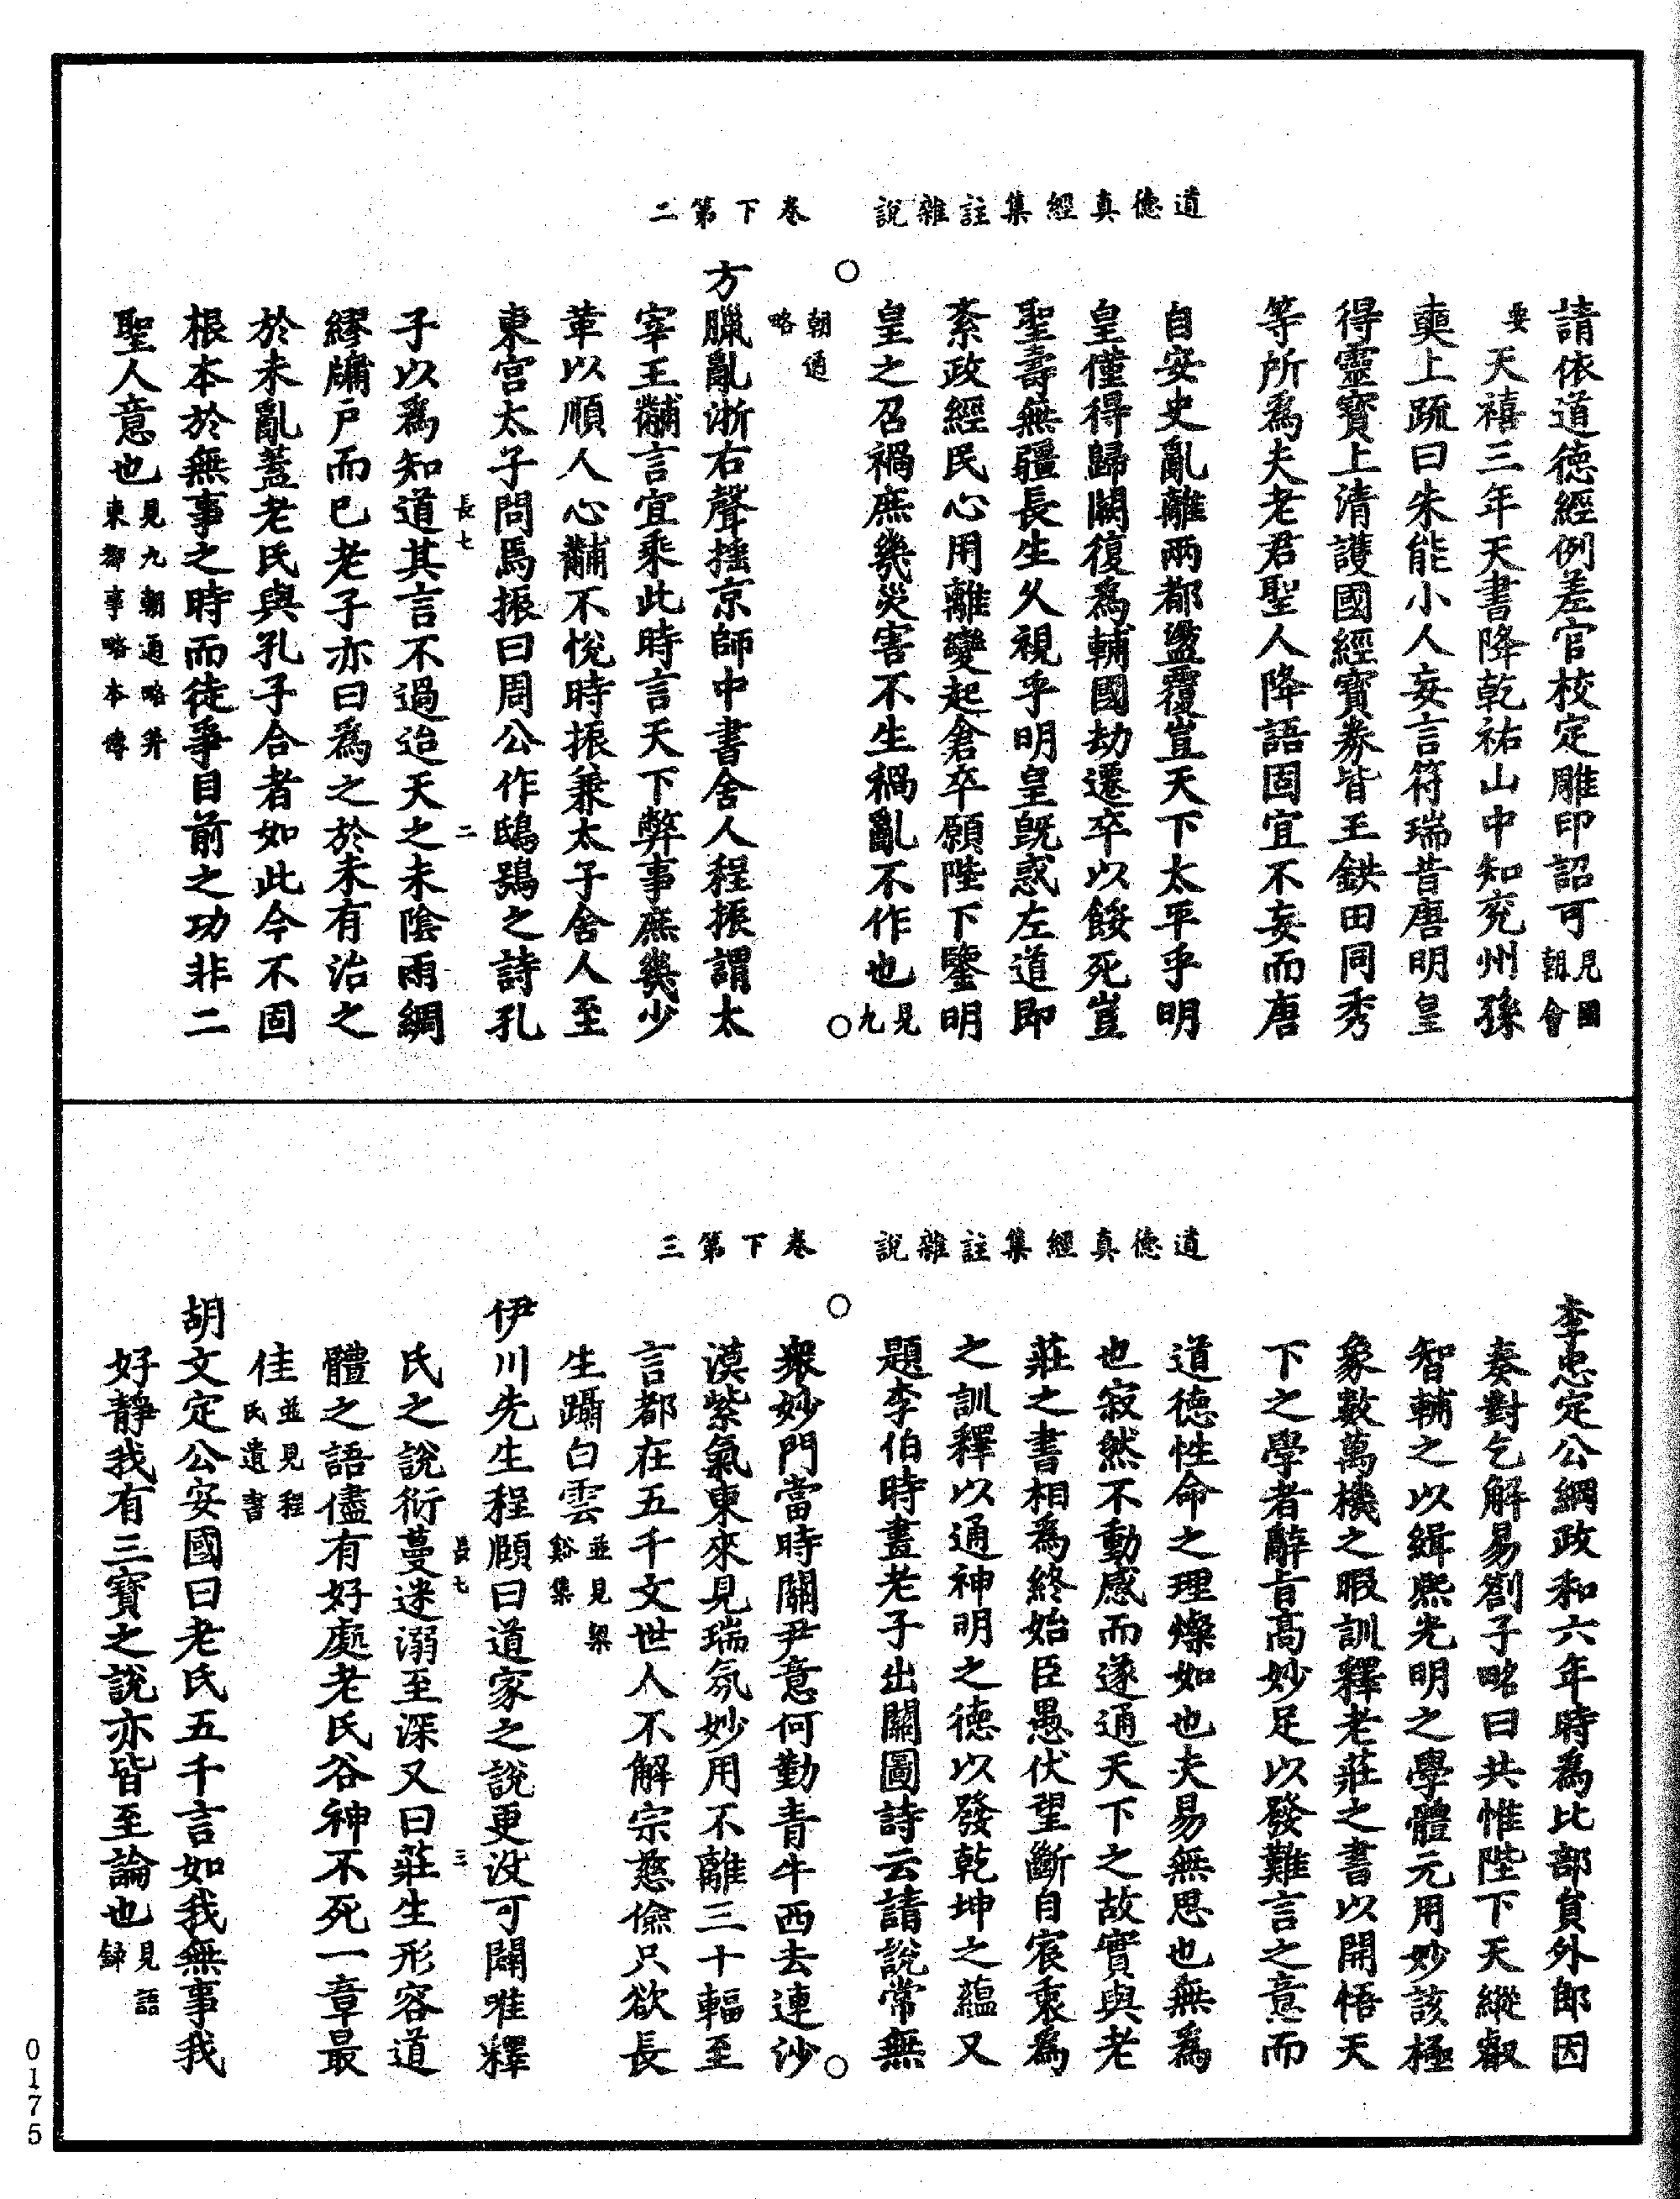 請依道德經例差官校定雕印詔可見國朝會
要天禧三年天書降乾祐山中知兖州孫
奭上疏曰朱能小人妄言符瑞昔唐明皇
得靈寶上清護國經寶券皆王鉷田同秀
等所爲夫老君聖人降語固宜不妄而唐
自安史亂離兩都盪覆豈天下太平乎明
皇僅得歸闕復爲輔國劫遷卒以餒死豈
聖壽無疆長生久視乎明皇既惑左道即
紊政經民心用離變起倉卒願陛下鑒明
皇之召禍庶幾災害不生禍亂不作也見九
道德真經集註雜說　卷下第二
朝通略
方臘亂浙右聲搖京師中書舍人程振謂太
宰王黼言宜乘此時言天下弊事庶幾少
革以順人心黼不悅時振兼太子舍人至
東宫太子問焉振曰周公作鴟鴞之詩孔
長七　二
子以爲知道其言不過迨天之未陰雨綢
繆牖户而已老子亦曰爲之於未有治之
於未亂蓋老氏與孔子合者如此今不固
根本於無事之時而徒爭目前之功非二
聖人意也見九朝通略并東都事略本傳
李忠定公綱政和六年時爲比部貟外郎因
奏對乞解易劄子略曰共惟陛下天縱叡
智輔之以緝熙光明之學體元用妙該極
象數萬機之暇訓釋老莊之書以開悟天
下之學者辭旨高妙足以發難言之意而
道德性命之理燦如也夫易無思也無爲
也寂然不動感而遂通天下之故實與老
莊之書相爲終始臣愚伏望斷自宸衷爲
之訓釋以通神明之德以發乾坤之蘊又
題李伯時畫老子出關圖詩云請說常無
道德真經集註雜說　卷下第三
衆妙門當時關尹意何勤青牛西去連沙
漠紫氣東來見瑞氛妙用不離三十輻至
言都在五千文世人不解宗慈儉只欲長
生躡白雲並見梁谿集
伊川先生程頤曰道家之說更没可闢唯釋
長七　三
氏之說衍蔓迷溺至深又曰莊生形容道
體之語儘有好處老氏谷神不死一章最
佳並見程氏遺書
胡文定公安國曰老氏五千言如我無事我
好靜我有三寶之說亦皆至論也見語録
0175